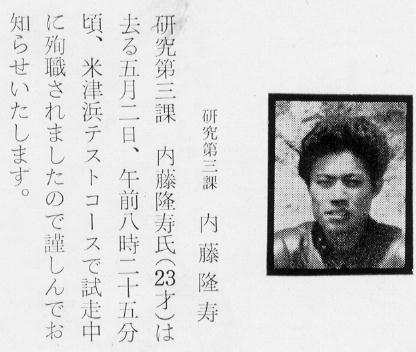 研究第三課　内藤隆寿
研究第三課　内藤隆寿氏(23才)は
去る五月二日、午前八時二十五分
頃、米津浜テストコースで試走中
に殉職されましたので謹しんでお
知らせいたします。